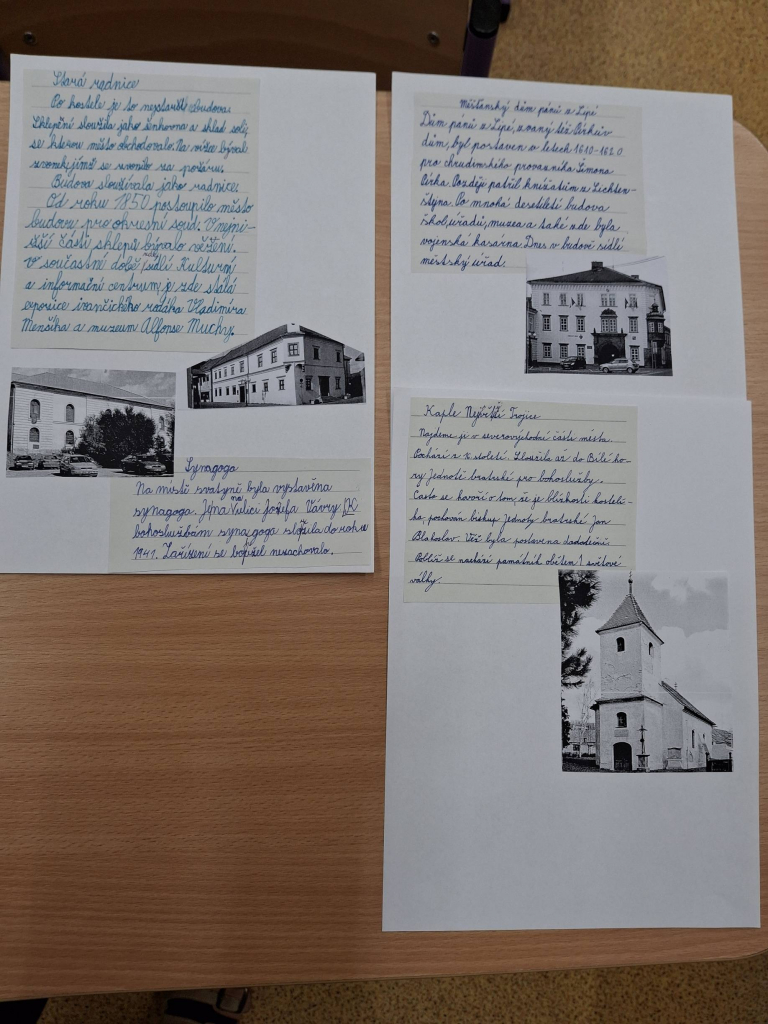 Stará radnice
Po kostele je to nejstarší budova.
Sklepení sloužila jako knihovna a sklad soli,
se kterou město obchodovalo. Na věžce býval
zvonek, jímž se zvonilo za požáru.
Budova sloužívala jako radnice.
Od roku 1850 postoupilo město
budovu pro okresní soud. V nejni-
žší části sklepů bývalo vězení.
V současné době zde sídlí Kulturní
a informační centrum, je zde stálá
expozice ivančického rodáka Vladimíra
Menšíka a muzeum Alfonse Muchy.
Synagoga
Na místě svatyně byla vystavěna
synagoga. Jina na Vulici Josefa Vávry
bohoslužbám synagoga sloužila do roku
1941. Zařízení se bohužel nezachovalo.
Měšťanský dům pánů z Lipé
Dům pánů z Lipé, zvaný též Pirkův
dům, byl postaven v letech 1610-1620
pro chrudimského provazníka Šimona
Pirka. Později patřil knížatům z Liechten-
štejna. Po mnohá desetiletí budova
škol, úřadů, muzea a také zde byla
vojenská kasárna Dnes v budově sídlí
městský úřad.
Kaple Nejsvětější Trojice
Najdeme ji v severovýchodní části města.
Pochází z století. Sloužila až do Bílé ho-
ry Jednotě bratrské pro bohoslužby.
Často se hovoří o tom, že je blízkosti kostelí-
ka, pochován biskup Jednoty bratrské Jan
Blahoslav. Věž byla postavena dodatečně.
Poblíž se nachází památník obětem 1 světové
války.